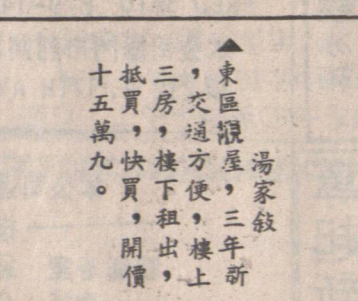 湯家敍
▲東區靚屋，三年新
，交通方便，樓上
三房，樓下租出，
抵買，快買，開價
十五萬九。